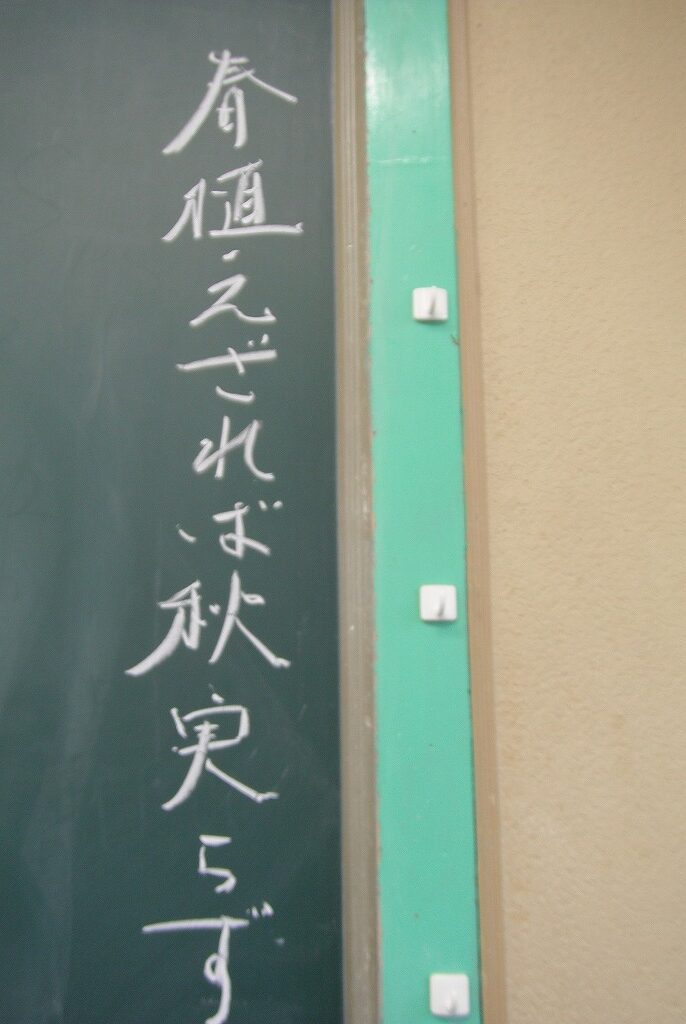 春植えざれば秋実らず